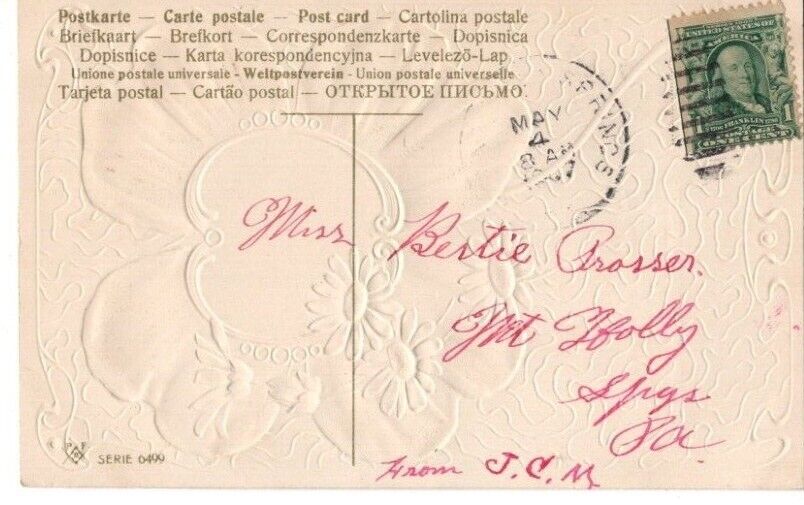 Postkarte — Carte postale — Post card — Cartolina postale
Briefkaart — Brefkort — Correspondenzkarte — Dopisnica
Dopisnice — Karta korespondencyjna — Levelező-Lap
Unione postale universale - Weltpostverein - Union postale universelle
Tarjeta postal — Cartão postal — ОТКРЫТОЕ ПИСЬМО.
SPRINGS
MAY
4
8 AM
UNITED STATES OF
AMERICA
FRANKLIN
POSTAGE
ONE CENT
1
Miss Bertie Prosser.
Mt Holly
Spgs
Pa
From J. C. M
P F
B
SERIE 6499